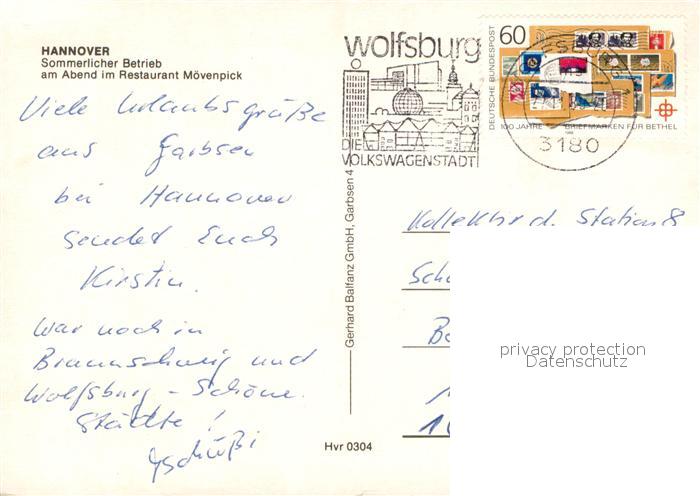 HANNOVER
Sommerlicher Betrieb
am Abend im Restaurant Mövenpick
Viele Urlaubsgrüße
aus Garbsen
bei Hannover
sendet Euch
Kirstin.
War noch in
Braunschweig und
Wolfsburg - Schöne
Städte!
Tschüßi
Gerhard Balfanz GmbH, Garbsen 4
Hvr 0304
wolfsburg
DIE
VOLKSWAGENSTADT
DEUTSCHE BUNDESPOST
60
100 JAHRE BRIEFMARKEN FÜR BETHEL
3180
Kollektiv d. Station 8
privacy protection
Datenschutz